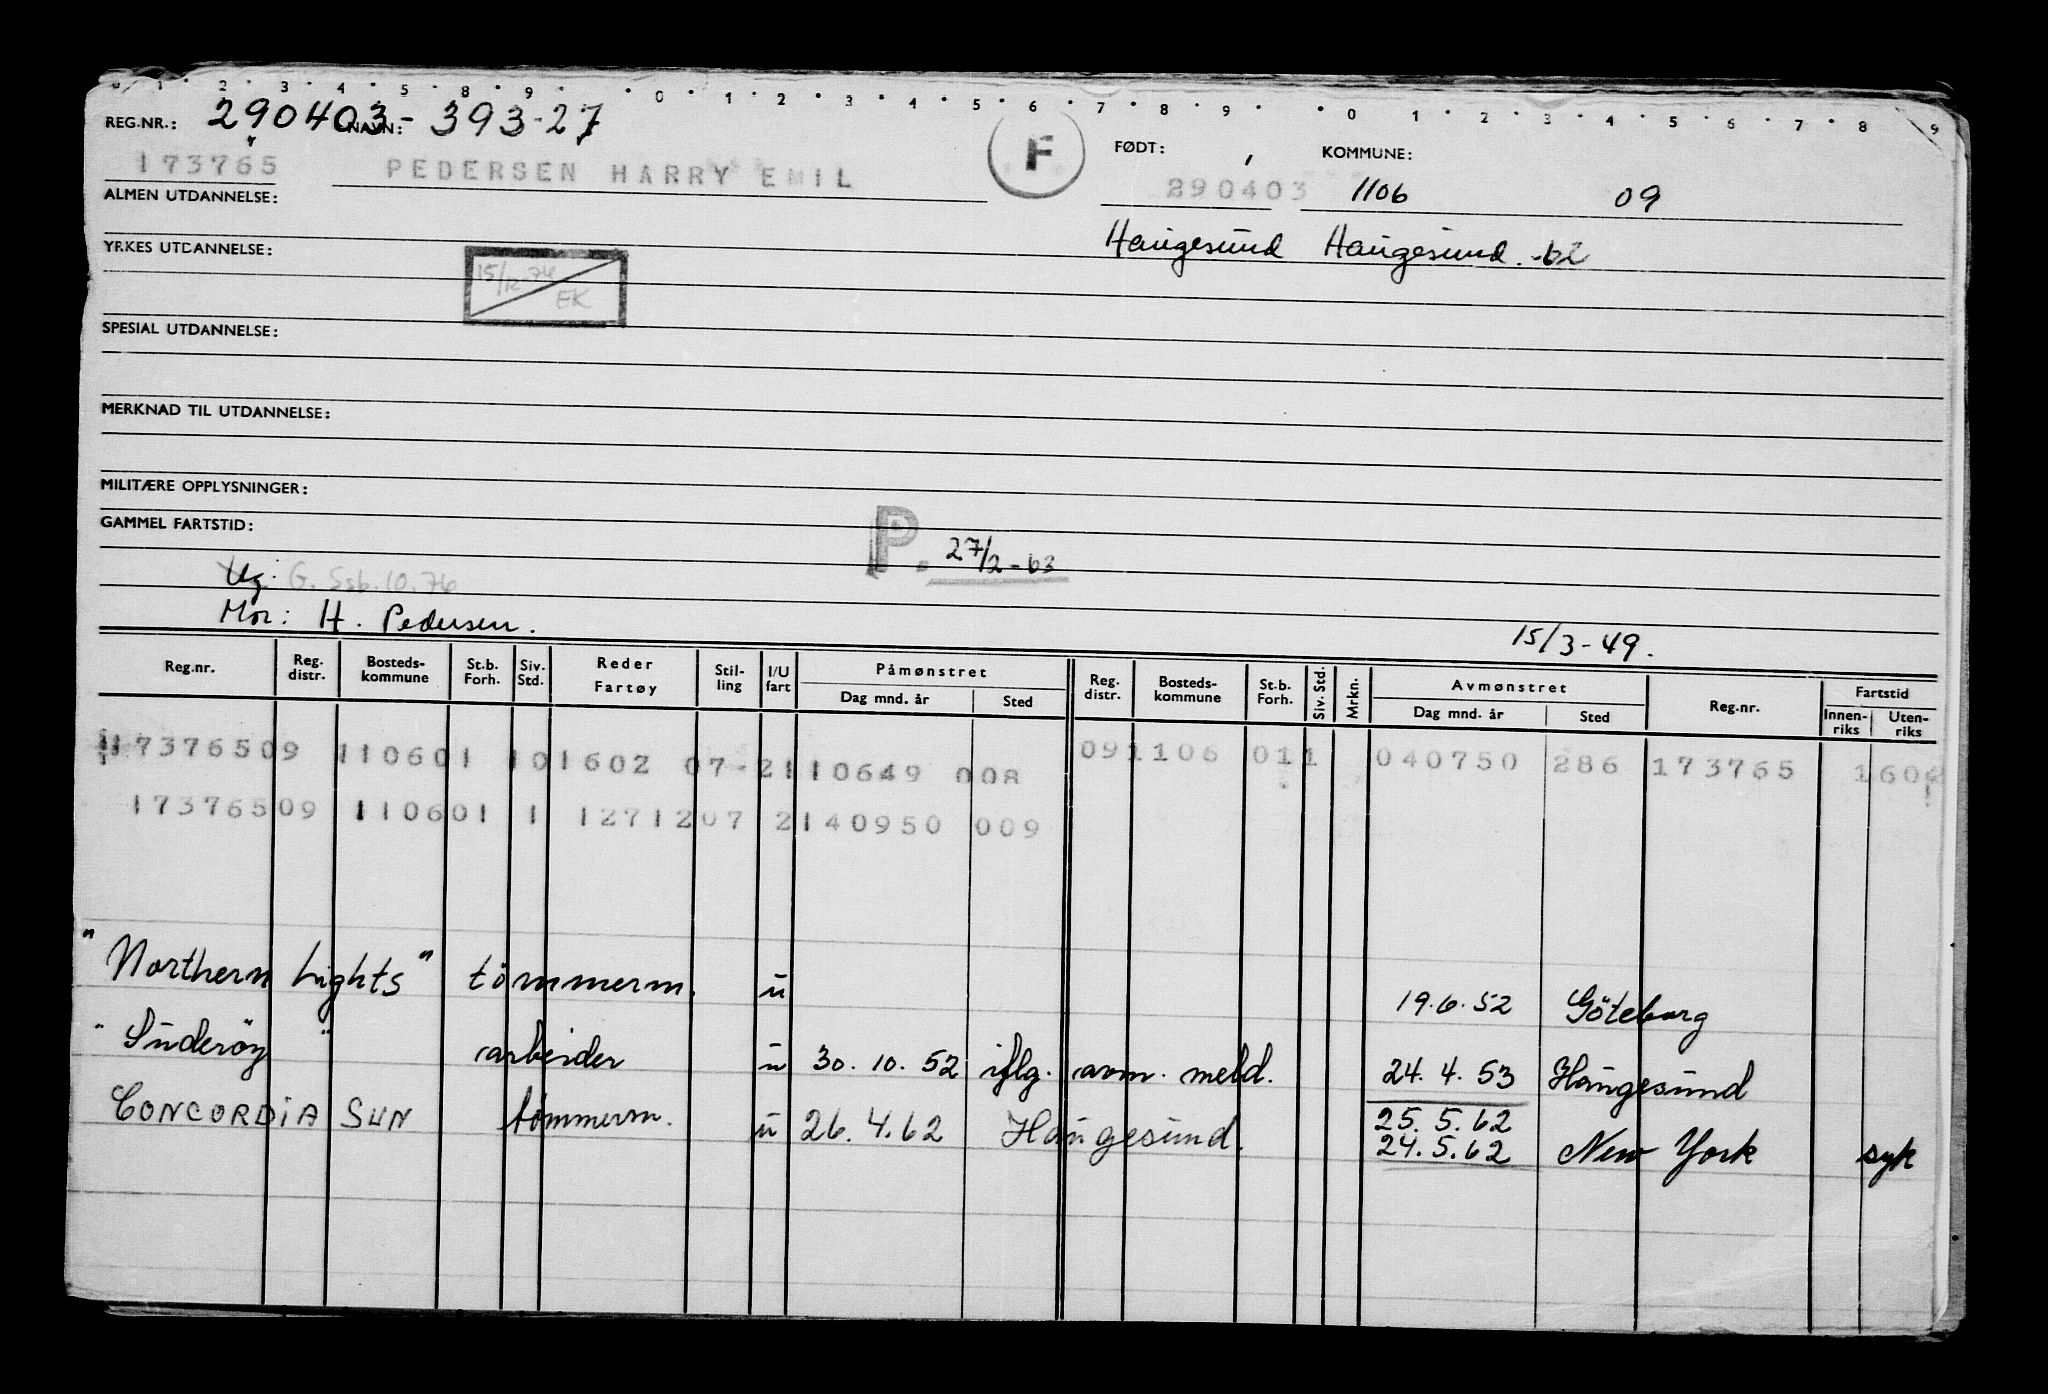 0 · 1 · 2 · 3 · 4 · 5 · 8 · 9 · · 0 · 1 · 2 · 3 · 4 · 5 · 6 · 7 · 8 · 9 · · 0 · 1 · 2 · 3 · 4 · 5 · 6 · 7 · 8 · 9
REG.NR.: 290403-393-27 NAVN: F FØDT: KOMMUNE:
173765 PEDERSEN HARRY EMIL 290403 1106 09
ALMEN UTDANNELSE:
Haugesund Haugesund. -62
YRKES UTDANNELSE:
15/12-76 EK
SPESIAL UTDANNELSE:
MERKNAD TIL UTDANNELSE:
MILITÆRE OPPLYSNINGER:
GAMMEL FARTSTID:
P. 27/2-63
Ug: G. Ssb. 10.76
Mor: H. Pedersen. 15/3-49.
Reg.nr. Reg. distr. Bosteds-kommune St.b. Forh. Siv. Std. Reder Fartøy Stil-ling I/U fart Påmønstret Dag mnd. år Sted Reg. distr. Bosteds-kommune St.b. Forh. Siv. Std. Mrkn. Avmønstret Dag mnd. år Sted Reg.nr. Fartstid Innen-riks Uten-riks
17376509 110601 101602 07-2110649 008 091106 011 040750 286 173765 1602
17376509 110601 1 127120 7 2140950 009
"Northern Lights" tømmerm. u 19.6.52 Göteborg
"Suderøy" arbeider u 30.10.52 iflg. avm. meld. 24.4.53 Haugesund
CONCORDIA SUN tømmerm. u 26.4.62 Haugesund. 25.5.62
24.5.62 New York syk